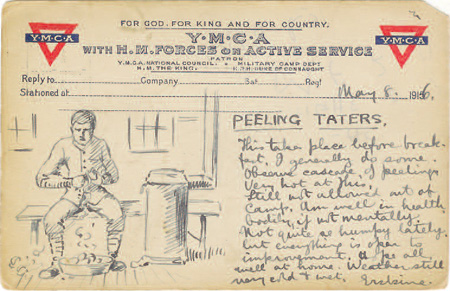 FOR GOD. FOR KING AND FOR COUNTRY.
Y·M·C·A
Y·M·C·A
Y·M·C·A
WITH H.M. FORCES ON ACTIVE SERVICE
PATRON
Y.M.C.A. NATIONAL COUNCIL. MILITARY CAMP DEPT.
H.M. THE KING. H.R.H. DUKE OF CONNAUGHT
Reply to Company Bat Regt
Stationed at May 8. 1916.
PEELING TATERS.
This take place before break-
fast. I generally do some.
Observe cascade of peelings
Very hot at this.
Still not allowed out of
Camp. Am well in health
bodily, if not mentally.
Not quite so humpy lately
but everything is open to
improvement. Hope all
well at home. Weather still
very cold & wet. Erskine.